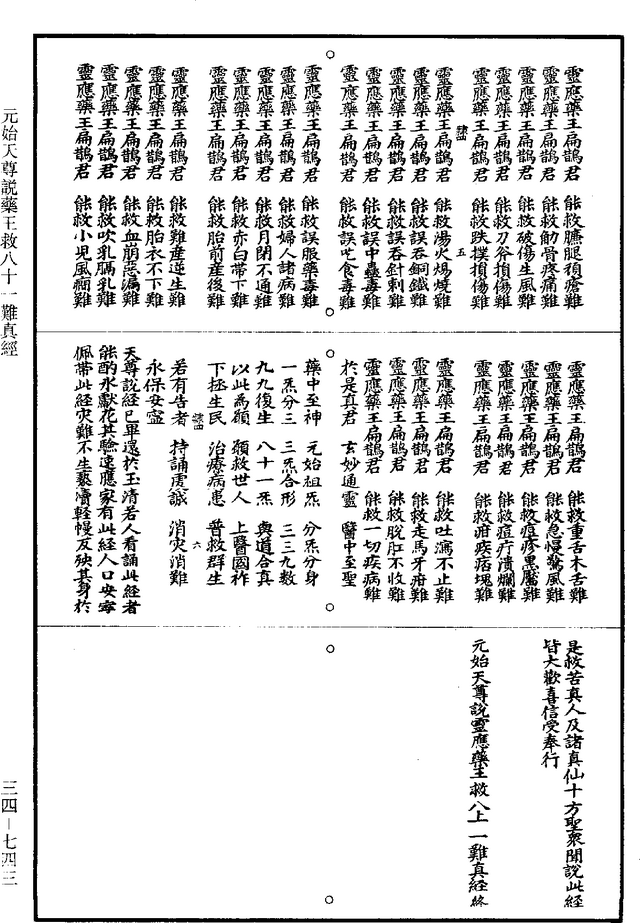 元始天尊説藥王救八十一難真經
三四—七四三
靈應藥王扁鵲君　能救臁腿頑瘡難
靈應藥王扁鵲君　能救筋骨疼痛難
靈應藥王扁鵲君　能救破傷生風難
靈應藥王扁鵲君　能救刀斧損傷難
靈應藥王扁鵲君　能救跌撲損傷難
靈應藥王扁鵲君　能救湯火燙燒難
五
靈應藥王扁鵲君　能救誤吞銅鐵難
靈應藥王扁鵲君　能救誤吞針刺難
靈應藥王扁鵲君　能救誤中蟲毒難
靈應藥王扁鵲君　能救誤吃食毒難
靈應藥王扁鵲君　能救誤服藥毒難
靈應藥王扁鵲君　能救婦人諸病難
靈應藥王扁鵲君　能救月閉不通難
靈應藥王扁鵲君　能救赤白帶下難
靈應藥王扁鵲君　能救胎前産後難
靈應藥王扁鵲君　能救難産逆生難
靈應藥王扁鵲君　能救胎衣不下難
靈應藥王扁鵲君　能救血崩惡漏難
靈應藥王扁鵲君　能救吹乳膈乳難
靈應藥王扁鵲君　能救小児風癇難
靈應藥王扁鵲君　能救重舌木舌難
靈應藥王扁鵲君　能救急慢驚風難
靈應藥王扁鵲君　能救痘疹黒黶難
靈應藥王扁鵲君　能救痘疔潰爛難
靈應藥王扁鵲君　能救疳疾痞塊難
靈應藥王扁鵲君　能救吐瀉不止難
靈應藥王扁鵲君　能救走馬牙疳難
靈應藥王扁鵲君　能救脱肛不收難
靈應藥王扁鵲君　能救一切疾病難
於是真君　玄妙通靈　醫中至聖
藥中至神　元始祖炁　分炁分身
一炁分三　三炁合形　三三九數
九九復生　八十一炁　與道合真
以此為願　願救世人　上醫國祚
下拯生民　治療病患　普救群生
六
若有告者　持誦虔誠　消灾消難
永保安寧
天尊説經已畢還於玉清若人看誦此經者
能酌水獻花其驗速應家有此經人口安寧
佩帶此經灾難不生褻瀆輕慢反殃其身於
是救苦真人及諸真仙十方聖衆聞説此經
皆大歡喜信受奉行
元始天尊説靈應藥王救八十一難真經終